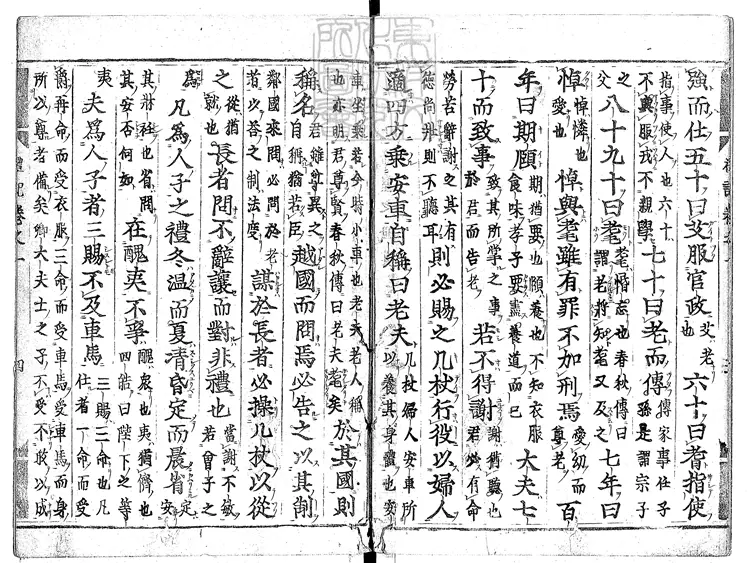 強而仕五十曰艾服官政艾老也六十曰耆指使
指事使人也六十不與服戎不親學七十曰老而傳傳家事任子孫是謂宗子
之父八十九十曰耄耄惛忘也春秋傳曰謂老將知耄又及之七年曰
悼悼憐愛也悼與耄雖有罪不加刑焉愛幼而尊老百
年曰期頤期猶要也頤養也不知衣服食味孝子要盡養道而已大夫七
十而致事致其所掌之事於君而告老若不得謝謝猶聽也君必有命
勞苦辭謝之其有德尚壯則不聽耳則必賜之几杖行役以婦人
適四方乘安車自稱曰老夫几杖婦人安車所以養其身體也安
車坐乘若今時小車也老夫老人稱也亦明君尊賢春秋傳曰老夫耄矣於其國則
稱名君雖尊異之自稱猶若臣越國而問焉必告之以其制
鄰國來問必問於老者以荅之制法度謀於長者必操几杖以從
之從猶就也長者問不辭讓而對非禮也當謝不敏若曾子之
為凡為人子之禮冬溫而夏凊昏定而晨省安定
其牀衽也省問其安否何如在醜夷不爭醜衆也夷猶儕也四皓曰陛下之等
夷夫為人子者三賜不及車馬三賜三命也凡仕者一命而受
爵再命而受衣服三命而受車馬受車馬而身所以尊者備矣卿大夫士之子不受不敢以成
禮記卷之一 四